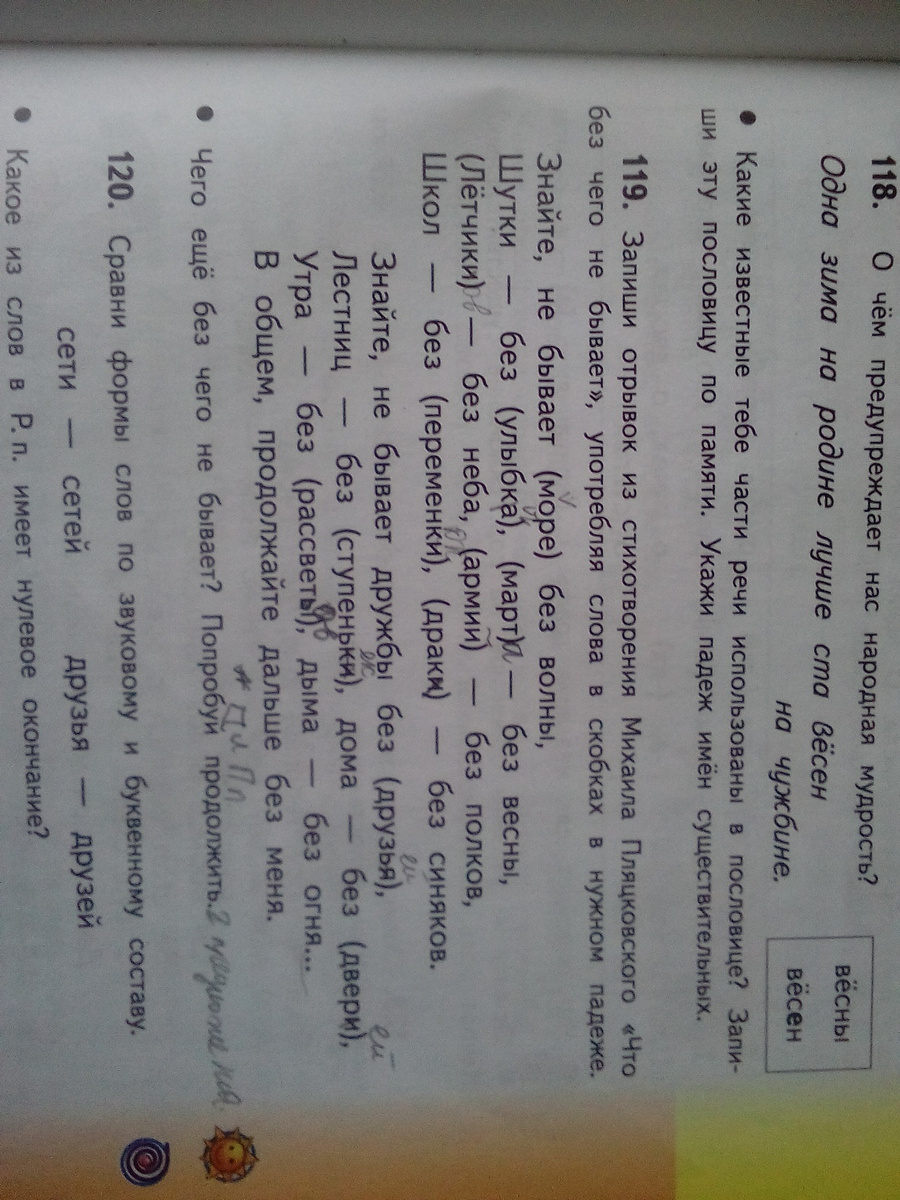 118. О чём предупреждает нас народная мудрость?
Одна зима на родине лучше ста вёсен
на чужбине.
вёсны
вёсен
• Какие известные тебе части речи использованы в пословице? Запи-
ши эту пословицу по памяти. Укажи падеж имён существительных.
119. Запиши отрывок из стихотворения Михаила Пляцковского «Что
без чего не бывает», употребляя слова в скобках в нужном падеже.
Знайте, не бывает (море) без волны,
Шутки — без (улыбка), (март)а — без весны,
(Лётчики)ов — без неба, (армии) — без полков,
Школ — без (переменки), (драки) — без синяков.
Знайте, не бывает дружбы без (друзья),
ей
Лестниц — без (ступеньки), дома — без (двери),
ек
ей
Утра — без (рассветы), дыма — без огня...
ов
В общем, продолжайте дальше без меня.
• Чего ещё без чего не бывает? Попробуй продолжить. 2 предложения.
120. Сравни формы слов по звуковому и буквенному составу.
сети — сетей друзья — друзей
• Какое из слов в Р. п. имеет нулевое окончание?